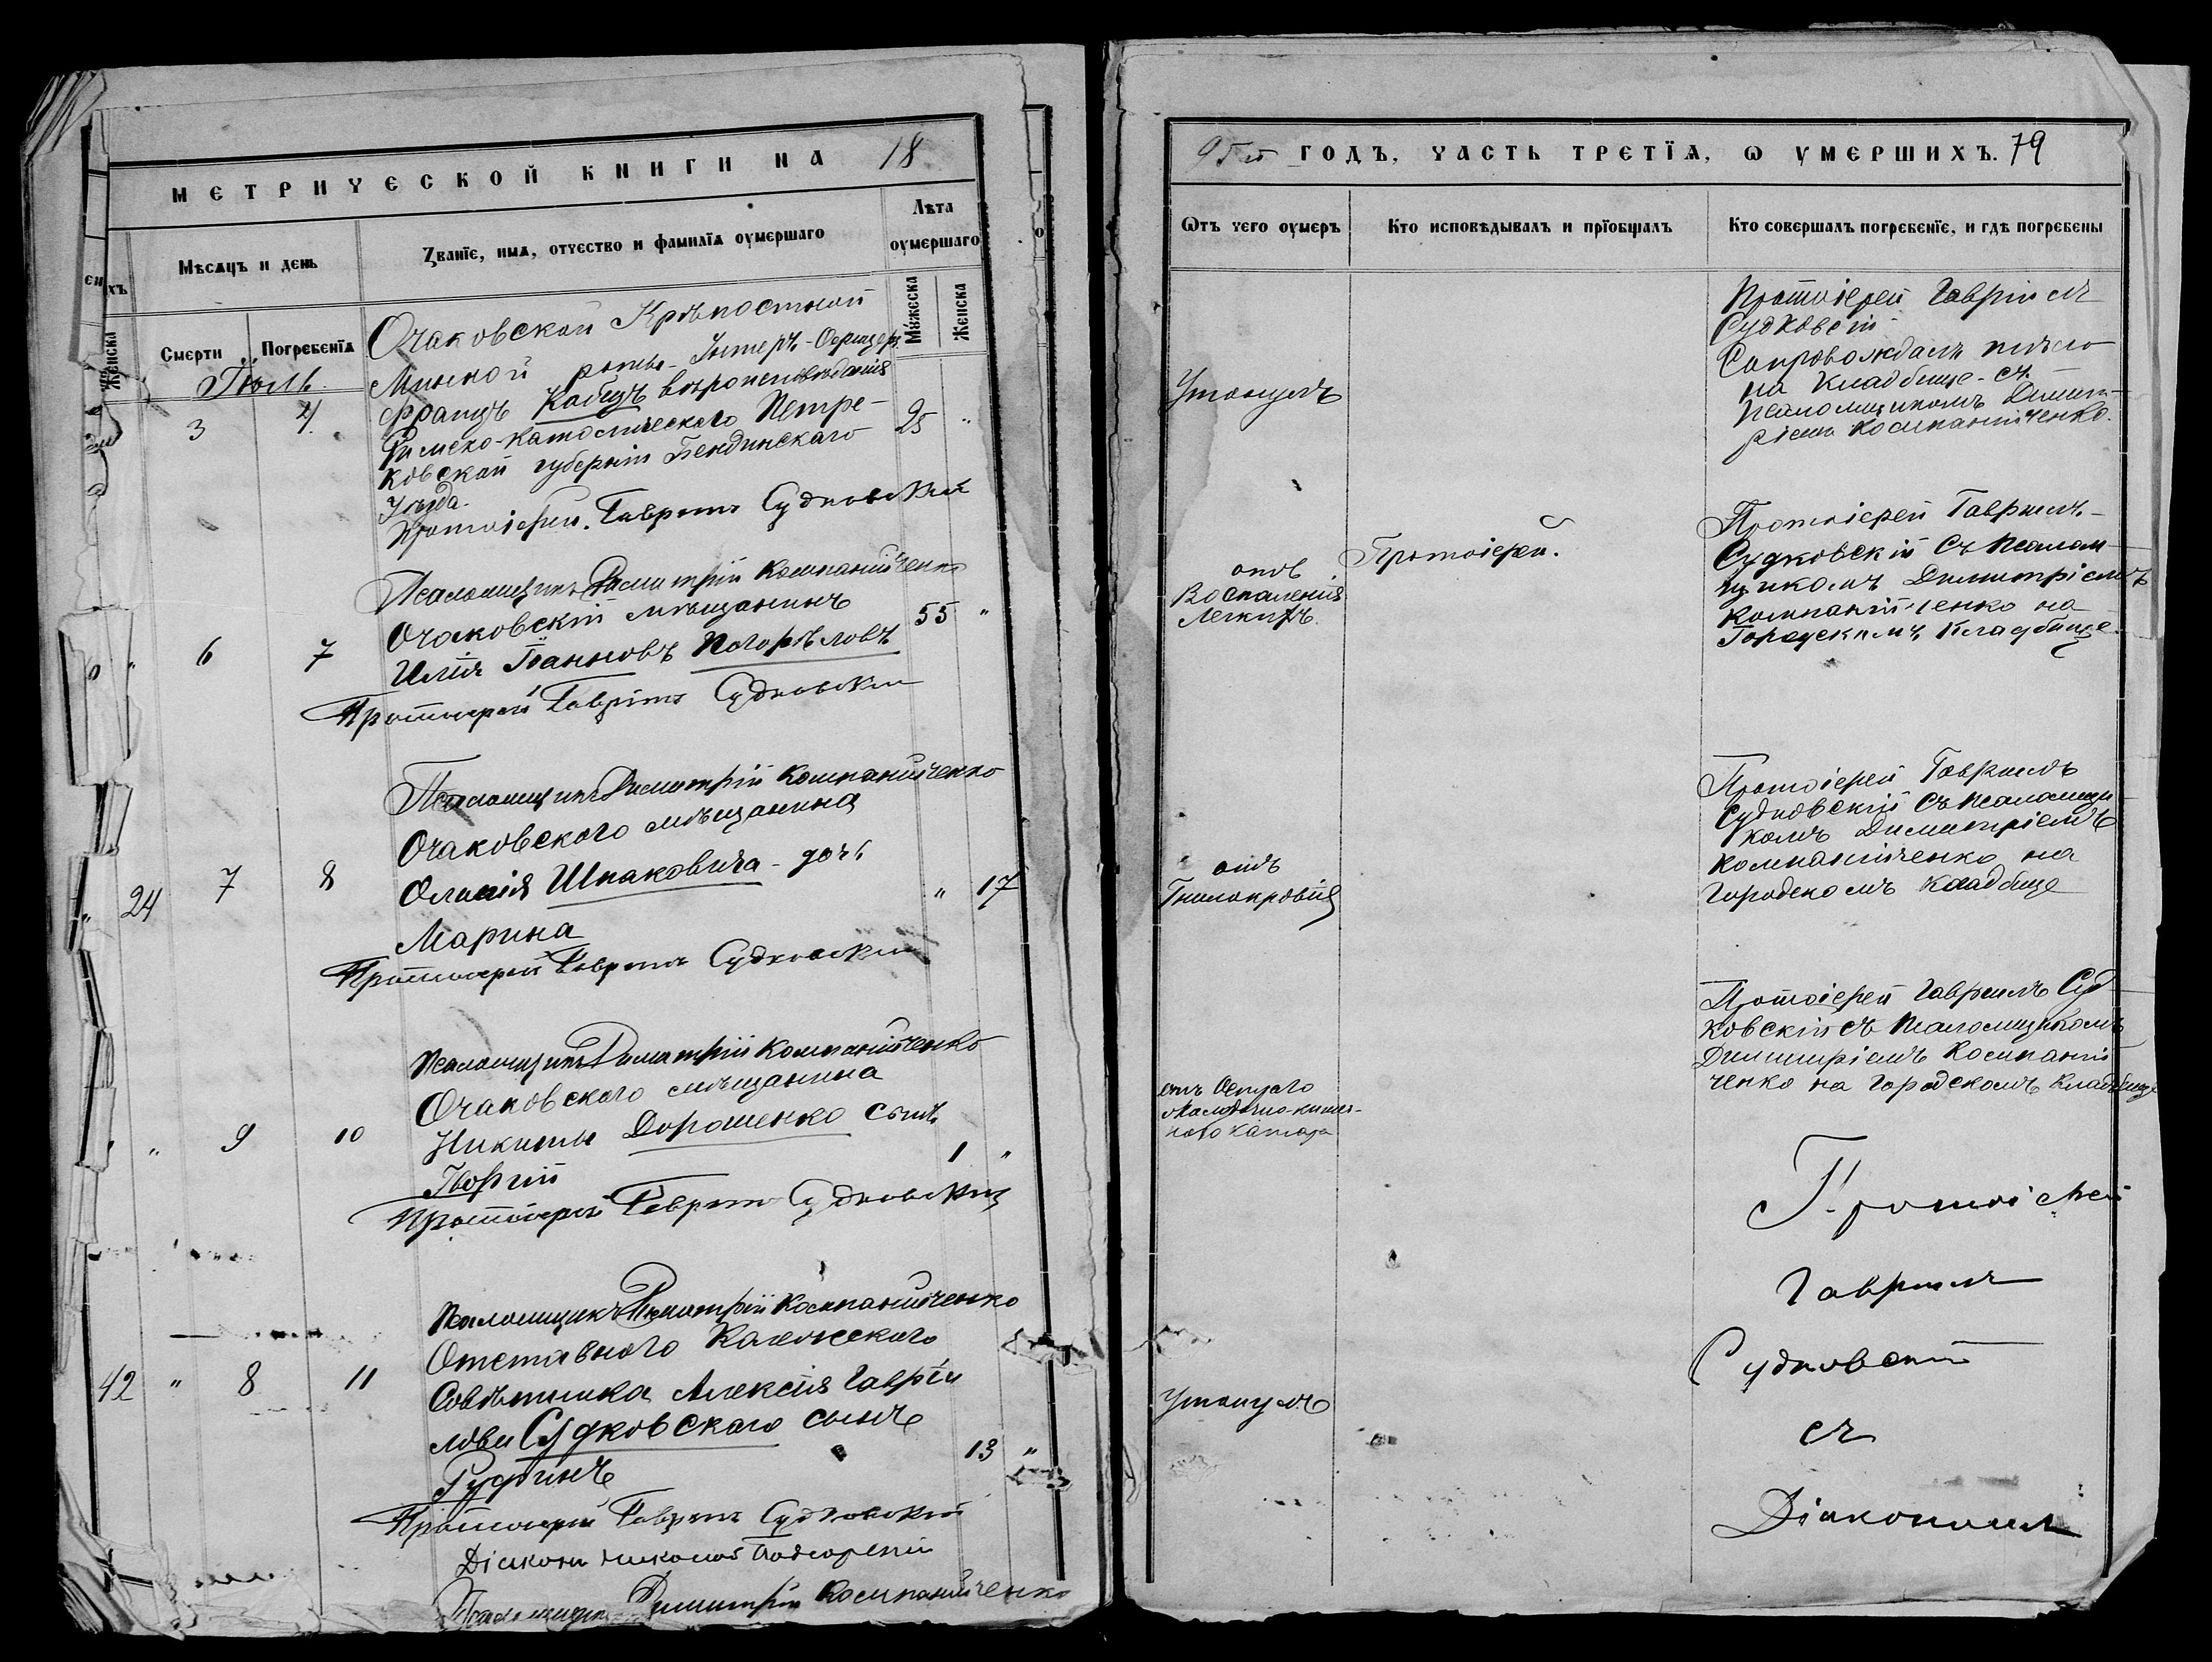 МЕТРИЧЕСКОЙ КНИГИ НА 18
Мѣсяцъ и день
Званїе, имя, отчество и фамилїя оумершаго
Лѣта оумершаго
Женска
Смерти
Погребенїя
Мужеска
Женска
Іюль
Очаковской Крѣпостной
Минной роты Унтеръ-Офицеръ
Францъ Кабецъ вѣроисповѣданія
3 4 Римско-Католическаго Петро- 25 "
ковской губерніи Бендинскаго
Уѣзда.
Протоіерей Гавріилъ Судковскій
Псаломщикъ Димитрій Компанійченко
Очаковскій мѣщанинъ
" 6 7 Илія Іоанновъ Погорѣловъ 55 "
Протоіерей Гавріилъ Судковскій
Псаломщикъ Димитрій Компанійченко
Очаковскаго мѣщанина
" 24 7 8 Шпаковича - дочь " 17
Марина
Протоіерей Гавріилъ Судковскій
Псаломщикъ Димитрій Компанійченко
Очаковскаго мѣщанина
" 9 10 Никиты Дорошенко сынъ
Георгій 1 "
Протоіерей Гавріилъ Судковскій
Псаломщикъ Димитрій Компанійченко
Отставного Коллежскаго
42 " 8 11 Совѣтника Алексія Гавріи
лова Судковскаго сынъ
Руфинъ 13 "
Протоіерей Гавріилъ Судковскій
Діаконъ Николай
Псаломщикъ Димитрій Компанійченко
95й ГОДЪ, ЧАСТЬ ТРЕТЇЯ, Ѡ УМЕРШИХЪ. 79
Ѡтъ чего оумеръ
Кто исповѣдывалъ и прїобщалъ
Кто совершалъ погребенїе, и гдѣ погребены
Утонулъ
Протоіерей Гавріилъ
Судковскій
Сопровождалъ тѣло
на кладбище - съ
псаломщикомъ Димит-
ріемъ Компанійченко.
отъ
Воспаленія
Легкихъ.
Протоіерей.
Протоіерей Гавріилъ
Судковскій съ Псалом
щикомъ Димитріемъ
Компанійченко на
Городскомъ кладбище.
отъ
Гнилокровія
Протоіерей Гавріилъ
Судковскій съ Псаломщи
комъ Димитріемъ
Компанійченко на
Городскомъ кладбище
отъ Остраго
желудочно-кишеч-
наго катара
Протоіерей Гавріилъ Суд
ковскій съ Псаломщикомъ
Димитріемъ Компаній
ченко на Городскомъ кладбище
Утонулъ
Протоіерей
Гавріилъ
Судковскій
съ
Діакономъ